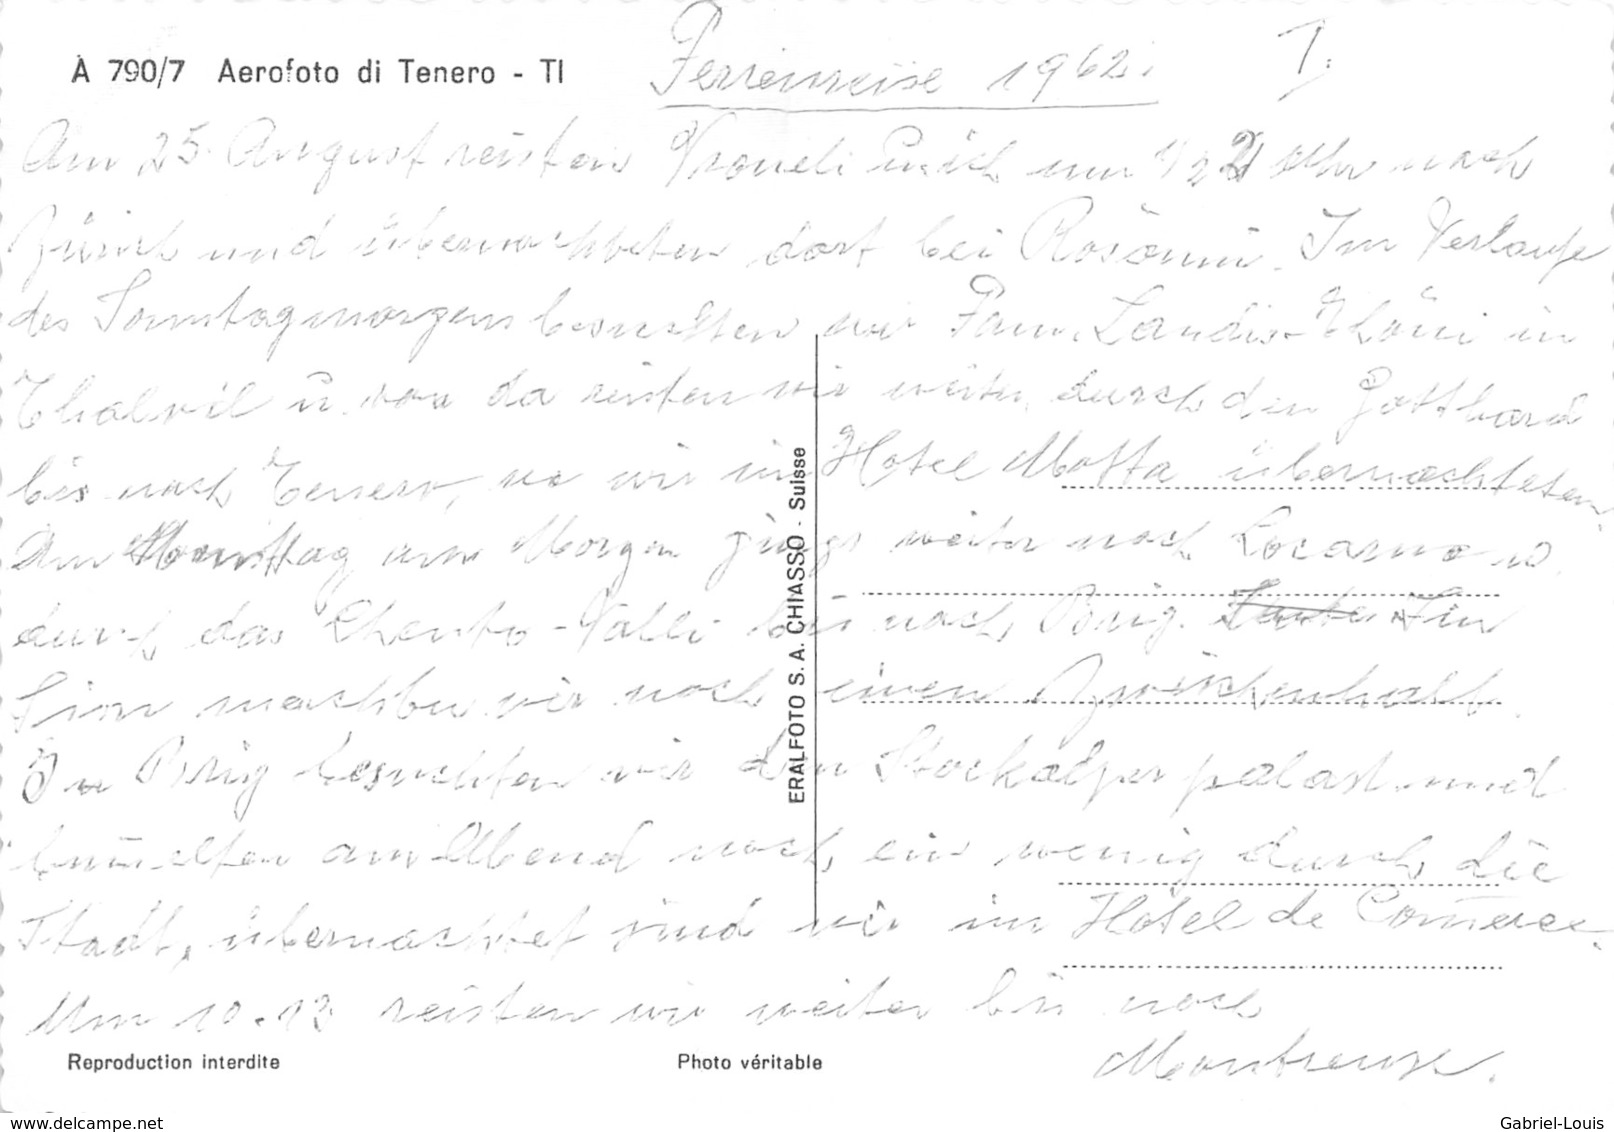 À 790/7 Aerofoto di Tenero - TI
Ferienreise 1962. I.
Am 25. August reisten Vroneli u. ich um 1/2 2 Uhr nach
Zürich und übernachteten dort bei Rösönni. Im Verlaufe
des Sonntagmorgens besuchten wir Fam. Landis-Thöni in
Thalwil u. von da reisten wir weiter durch den Gotthard
bis nach Tenero, wo wir im Hotel Motta übernachteten.
Am Montag am Morgen gings weiter nach Locarno u.
durch das Chento-Valli bis nach Brig. In
Sion machten wir noch einen Zwischenhalt.
In Brig besuchten wir den Stockalperpalast und
bummelten am Abend noch ein wenig durch die
Stadt, übernachtet sind wir im Hôtel de Comerce.
Um 10.13 reisten wir weiter bis nach
Montreux.
ERALFOTO S. A. CHIASSO - Suisse
Reproduction interdite
Photo véritable
www.delcampe.net
Gabriel-Louis